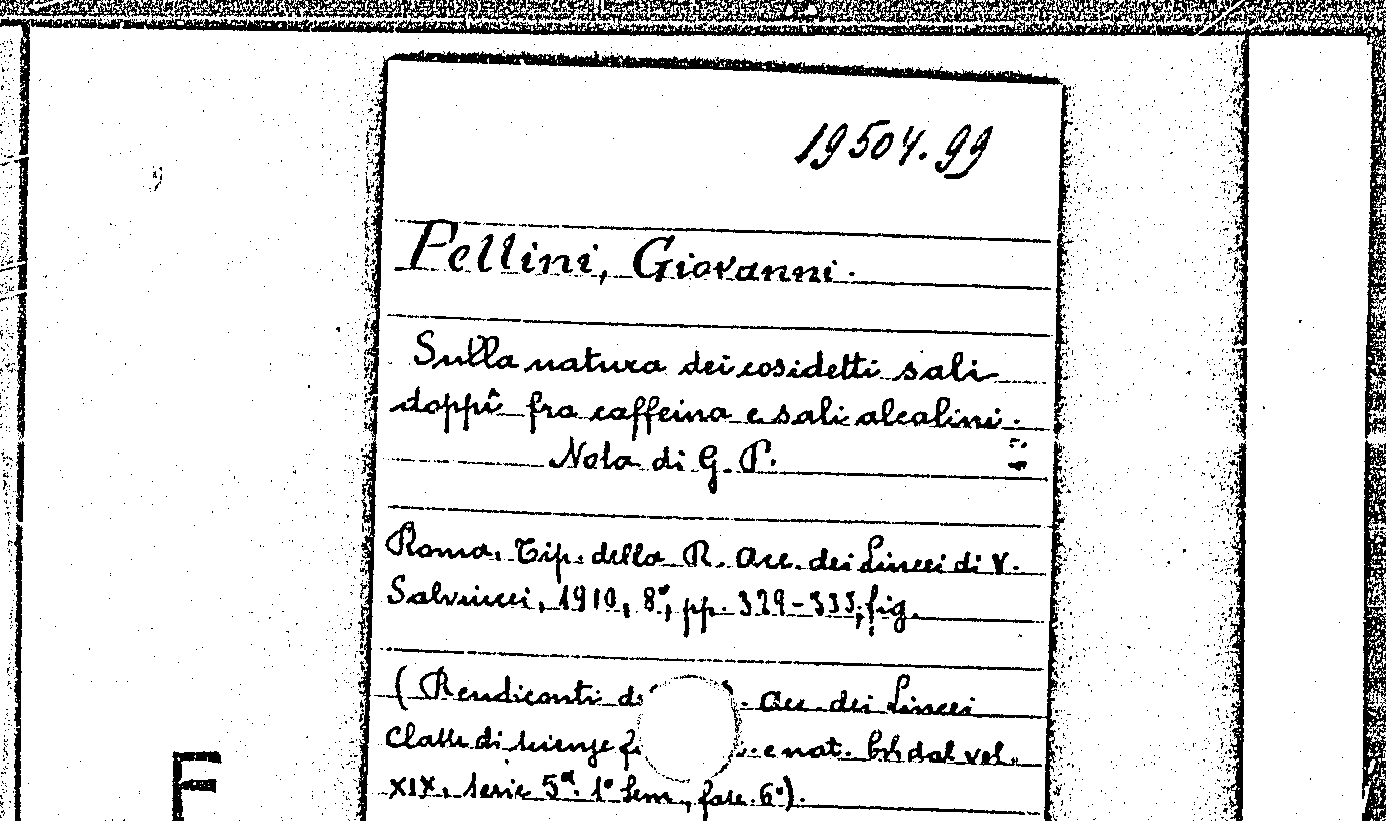 19504.99
Pellini, Giovanni.
Sulla natura dei cosidetti sali
doppi fra caffeina e sali alcalini.
Nota di G. P.
Roma. Tip. della R. Acc. dei Lincei di V.
Salviucci, 1910, 8°, pp. 329-333, fig.
(Rendiconti R. Acc. dei Lincei
Classe di scienze e nat. dal vol.
XIX, serie 5ª. 1° Sem., fasc. 6°).
F